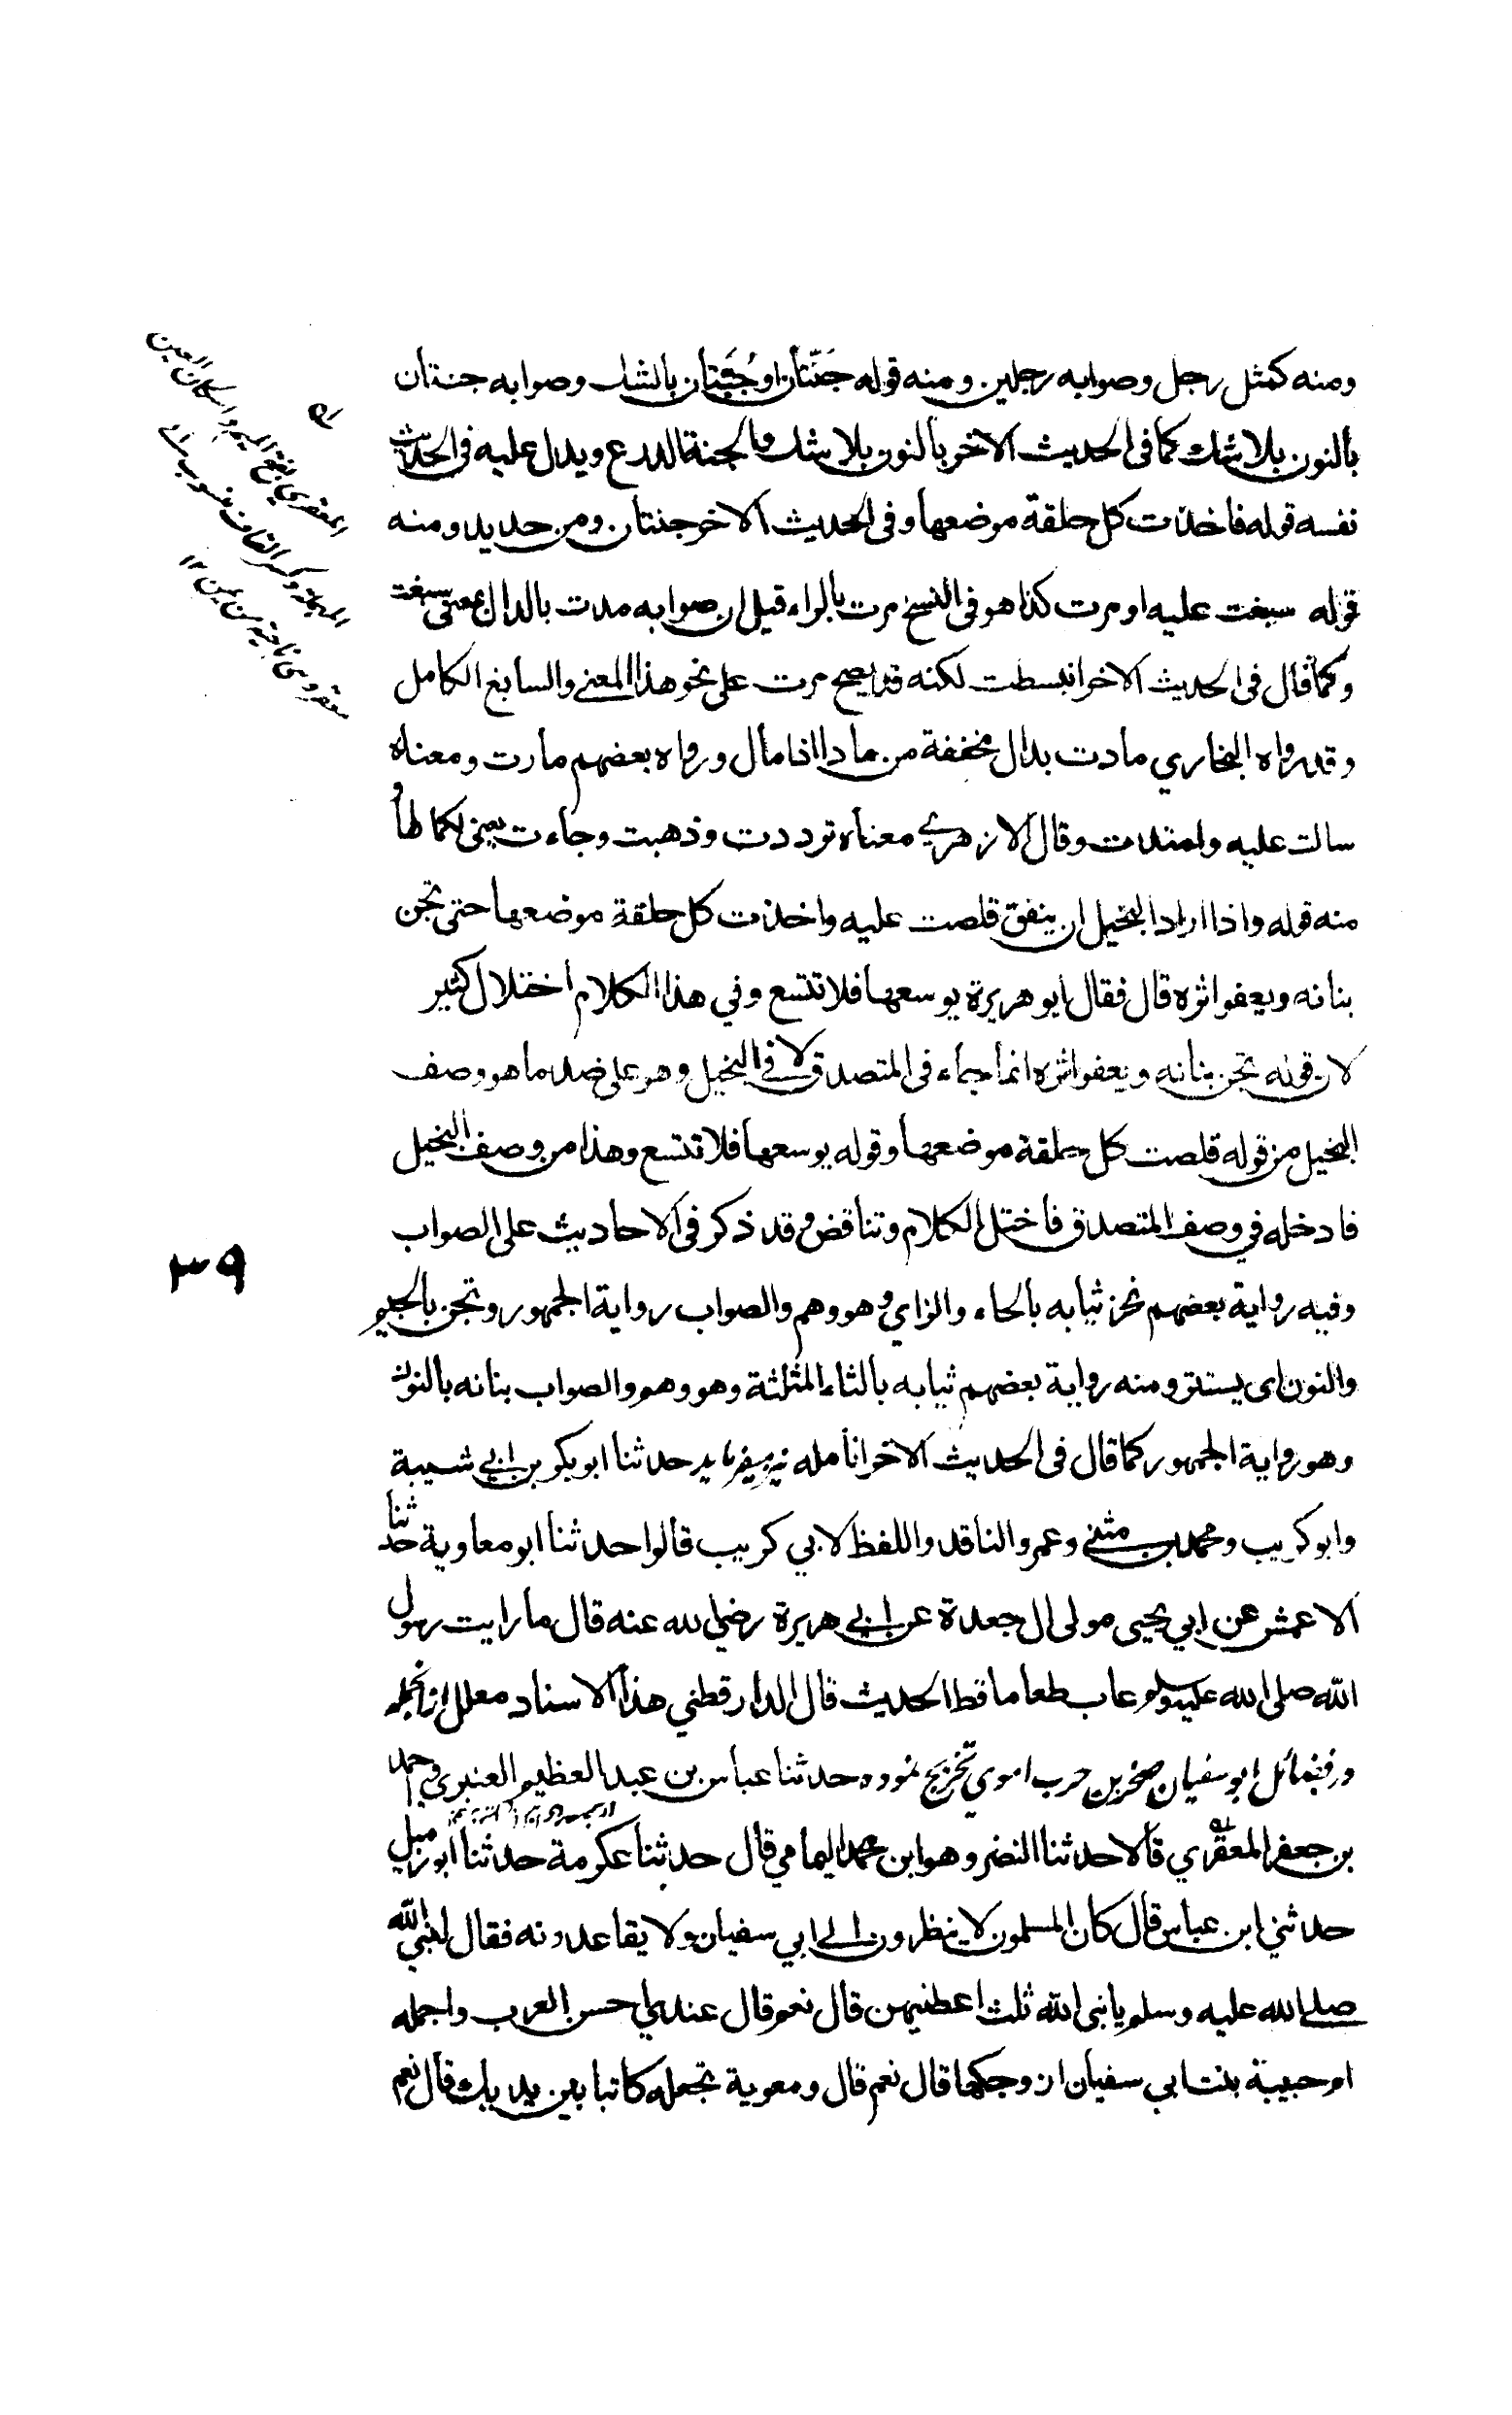 ومنه كمثل رجل وصوابه رجلين ومنه قوله جَنَّتان او جُبَّتان بالشك وصوابه جنتان
بالنون بلا شك كما فى الحديث الاخر بالنون بلا شك والجنة الدرع ويدل عليه فى الحديث
نفسه قوله فاخذت كل حلقة موضعها وفى الحديث الاخر جنتان ومن حديد ومنه
قوله سبغت عليه او مرت كذا هو فى النسخ مرت بالراء قيل ان صوابه مدت بالدال بمعنى سبغت
وكما قال فى الحديث الاخر انبسطت لكنه قد يصح مرت على نحو هذا المعنى والسابغ الكامل
وقد رواه البخاري مادت بدال مخففة من ماد اذا مال ورواه بعضهم مارت ومعناه
سالت عليه وامتدت وقال الازهري معناه ترددت وذهبت وجاءت يعنى لكمالها و
منه قوله واذا اراد البخيل ان ينفق قلصت عليه واخذت كل حلقة موضعها حتى تجن
بنانه ويعفو اثره قال فقال ابو هريرة يوسعها فلا تتسع وفي هذا الكلام اختلال كثير
لان قوله تجن بنانه ويعفو اثره انما جاء فى المتصدق لا في البخيل وهو على ضد ما هو وصف
البخيل من قوله قلصت كل حلقة موضعها وقوله يوسعها فلا تتسع وهذا من وصف البخيل
فادخله في وصف المتصدق فاختل الكلام وتناقض وقد ذكر فى الاحاديث على الصواب
وفيه رواية بعضهم تحز ثيابه بالحاء والزاي وهو وهم والصواب رواية الجمهور وتجن بالجيم
والنون اى يستتر ومنه رواية بعضهم ثيابه بالثاء المثلثة وهو وهم والصواب بنانه بالنون
وهو رواية الجمهور كما قال فى الحديث الاخر انامله نيز ميفرمايد حدثنا ابو بكر بن ابي شيبة
وابو كريب ومحمد بن مثنى وعمرو الناقد واللفظ لابي كريب قالوا حدثنا ابو معاوية حدثنا
الاعمش عن ابي يحيى مولى ال جعدة عن ابي هريرة رضي الله عنه قال ما رايت رسول
الله صلى الله عليه وسلم عاب طعاما قط الحديث قال الدارقطني هذا الاسناد معلل ازانجمله
در فضائل ابو سفيان صخر بن حرب اموي تخريج نموده حدثنا عباس بن عبد العظيم العنبري واحمد
بن جعفر المعقري قالا حدثنا النضر وهو ابن محمد اليمامي قال حدثنا عكرمة حدثنا ابو زميل
حدثني ابن عباس قال كان المسلمون لا ينظرون الى ابي سفيان ولا يقاعدونه فقال لنبي الله
صلى الله عليه وسلم يا نبى الله ثلث اعطنيهن قال نعم قال عندي احسن العرب واجمله
ام حبيبة بنت ابي سفيان ازوجكها قال نعم قال ومعوية تجعله كاتبا بين يديك قال نعم
المعقري بفتح الميم واسكان العين
المهملة وكسر القاف منسوب الى
معقر وهى ناحية من اليمن ١٢
٣٩